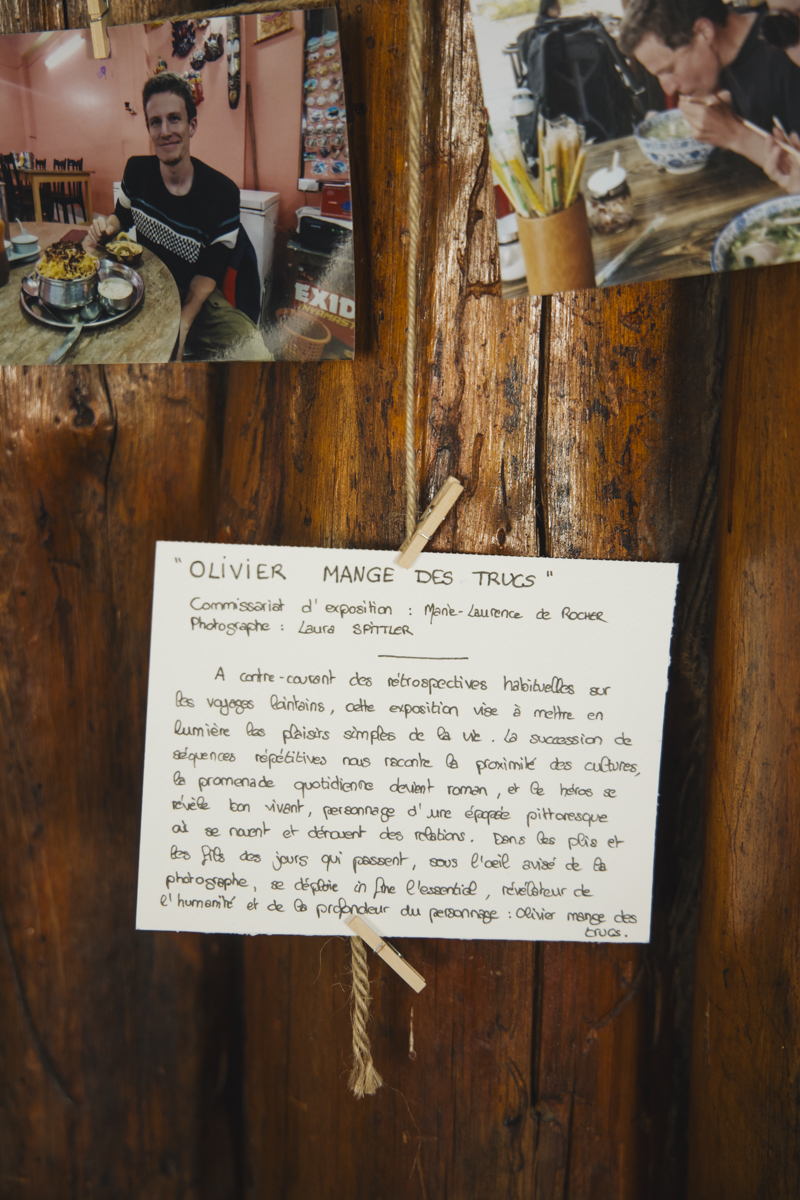 EXID
"OLIVIER MANGE DES TRUCS"
Commissariat d'exposition : Marie-Laurence de ROCHER
Photographe : Laura SPITTLER
A contre-courant des rétrospectives habituelles sur
les voyages lointains, cette exposition vise à mettre en
lumière les plaisirs simples de la vie. La succession de
séquences répétitives nous raconte la proximité des cultures,
la promenade quotidienne devient roman, et le héros se
révèle bon vivant, personnage d'une épopée pittoresque
où se nouent et dénouent des relations. Dans les plis et
les fils des jours qui passent, sous l'oeil avisé de la
photographe, se déploie in fine l'essentiel, révélateur de
l'humanité et de la profondeur du personnage : Olivier mange des
trucs.